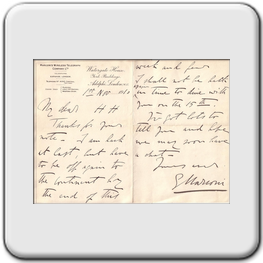 MARCONI'S WIRELESS TELEGRAPH
COMPANY LTD
Watergate House,
York Buildings,
Adelphi, London, W.C.
1st Nov 1910
My dear H H
Thanks for your
note – I am back
at last, but have
to be off again to
the continent by
the end of this
week and fear
I shall not be back
in time to dine with
you on the 15th
I've got lots to
tell you and hope
we may soon have
a chat –
Yours ever
G Marconi